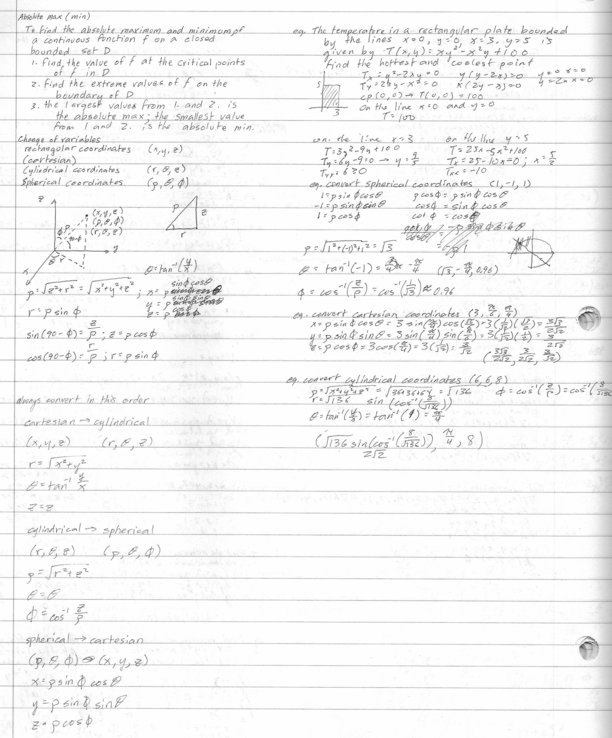 Absolute max (min)
To find the absolute maximum and minimum of
a continuous function f on a closed
bounded set D
1. find the value of f at the critical points
of f in D
2. find the extreme values of f on the
boundary of D
3. the largest values from 1. and 2. is
the absolute max; the smallest value
from 1 and 2. is the absolute min.
Change of variables
rectangular coordinates (x, y, z)
(cartesian)
Cylindrical coordinates (r, θ, z)
Spherical coordinates (ρ, θ, φ)
z
(x, y, z)
(ρ, θ, φ)
(r, θ, z)
y
x
ρ
z
r
θ = tan⁻¹(y/x)
ρ = √z²+r² = √x²+y²+z² ; x = ρ sinφ cosθ
r = ρ sin φ
sin(90-φ) = z/ρ ; z = ρ cos φ
cos(90-φ) = r/ρ ; r = ρ sin φ
always convert in this order
cartesian → cylindrical
(x, y, z) (r, θ, z)
r = √x²+y²
θ = tan⁻¹ y/x
z = z
cylindrical → spherical
(r, θ, z) (ρ, θ, φ)
ρ = √r²+z²
θ = θ
φ = cos⁻¹ z/ρ
spherical → cartesian
(ρ, θ, φ) → (x, y, z)
x = ρ sin φ cos θ
y = ρ sin φ sin θ
z = ρ cos φ
eg. The temperature in a rectangular plate bounded
by the lines x=0, y=0, x=3, y=5 is
given by T(x,y) = xy² - x²y + 100
find the hottest and coolest point
5
3
Tx = y² - 2xy = 0 y(y-2x) = 0 y=0 x=0
Ty = 2xy - x² = 0 x(2y-x) = 0
cp (0,0) → T(0,0) = 100
on the line x=0 and y=0
T = 100
on the line x=3 on the line y=5
Ty = 6y-9=0 → y = 3/2 Tx = 25-10x=0 ; x = 5/2
Tyy = 6 > 0 Txx = -10
eg. convert spherical coordinates (1, -1, 1)
1 = ρ sin φ cos θ
-1 = ρ sin φ sin θ
1 = ρ cos φ
ρ = √1²+(-1)²+1² = √3
θ = tan⁻¹(-1) = -π/4 (√3, -π/4, 0.96)
φ = cos⁻¹(z/ρ) = cos⁻¹(1/√3) ≈ 0.96
eg. convert cartesian coordinates (3, π/6, π/4)
eg. convert cylindrical coordinates (6, 6, 8)
ρ = √x²+y²+z² = √36+36+64 = √136
θ = tan⁻¹(y/x) = tan⁻¹(1) = π/4
(√136 sin(cos⁻¹(8/√136)), π/4, 8)